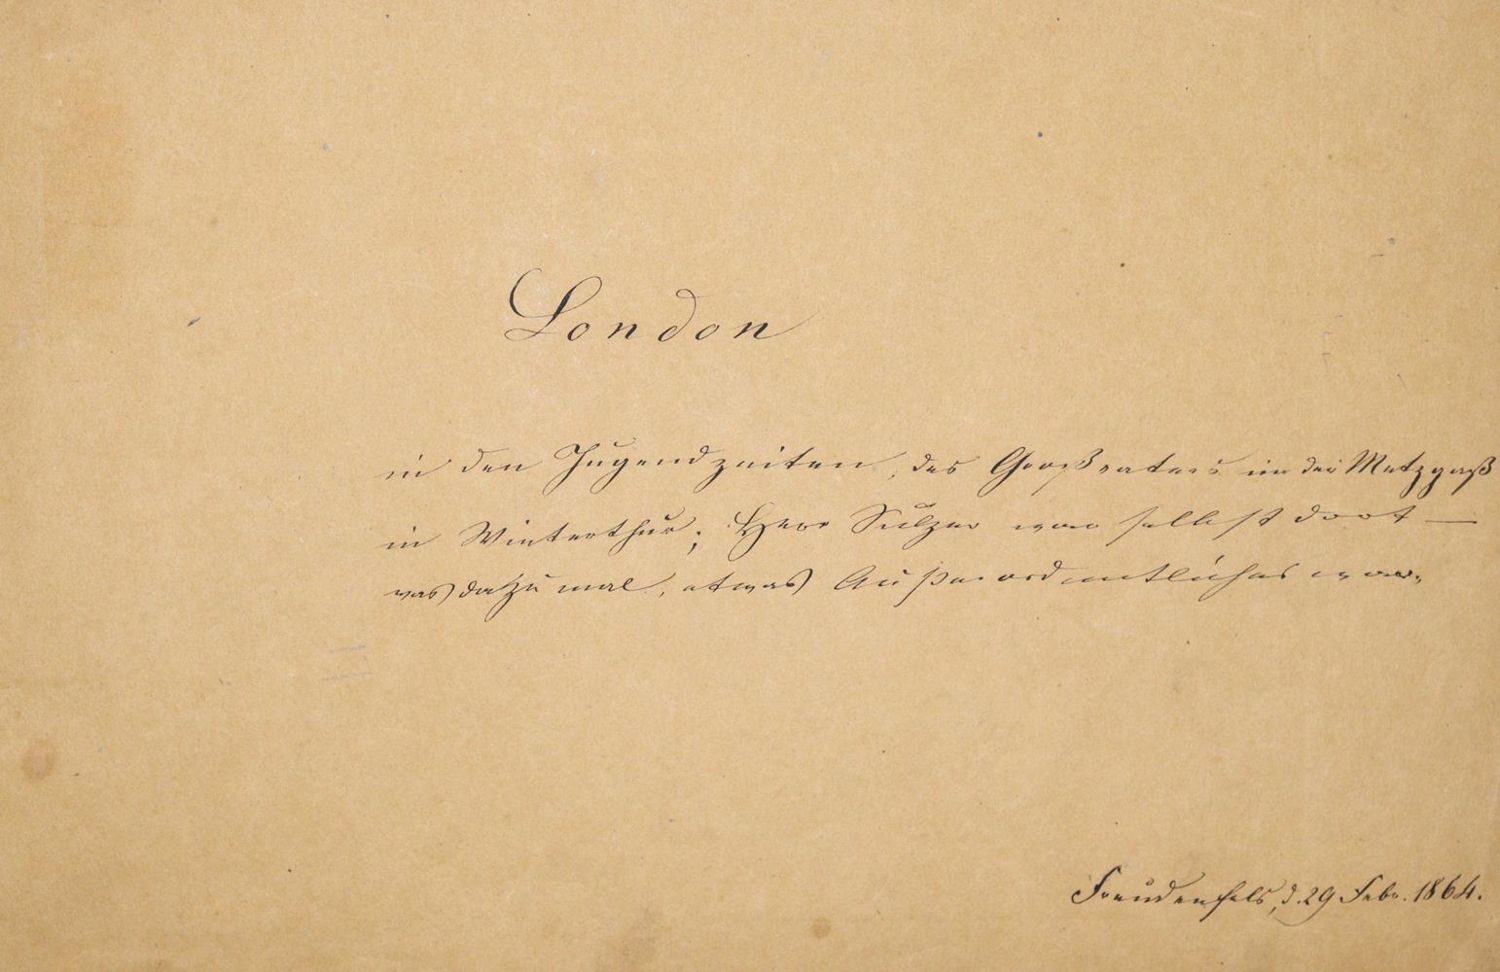 London
in den Jugendzeiten, des Großvaters in der Metzgaß
in Winterthur; Herr Sulzer war selbst dort —
was dazumal, etwas Außerordentliches war.
Freudenfels, d. 29 Febr. 1864.